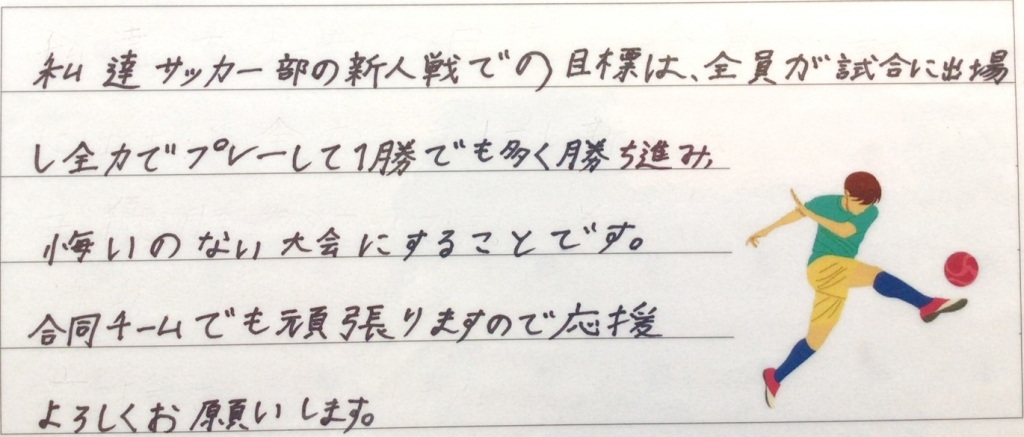 私達サッカー部の新人戦での目標は、全員が試合に出場
し全力でプレーして1勝でも多く勝ち進み、
悔いのない大会にすることです。
合同チームでも頑張りますので応援
よろしくお願いします。